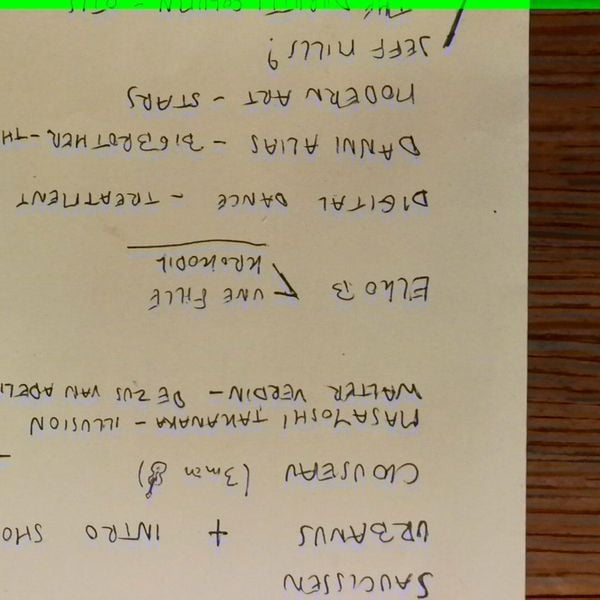 SAUCISSEN
URBANUS + INTRO SHO
CLOUSEAU (3min
MASAYOSHI TAKANAKA - ILLUSION
WALTER VERDIN - DE ZUS VAN ADEL
ELKO B < UNE FILLE
KROKODIL
DIGITAL DANCE - TREATMENT
DANNI ALIAS - BIG BROTHER - TH
MODERN ART - STARS
JEFF MILLS?
THE DURUTTI COLUMN - OTIS